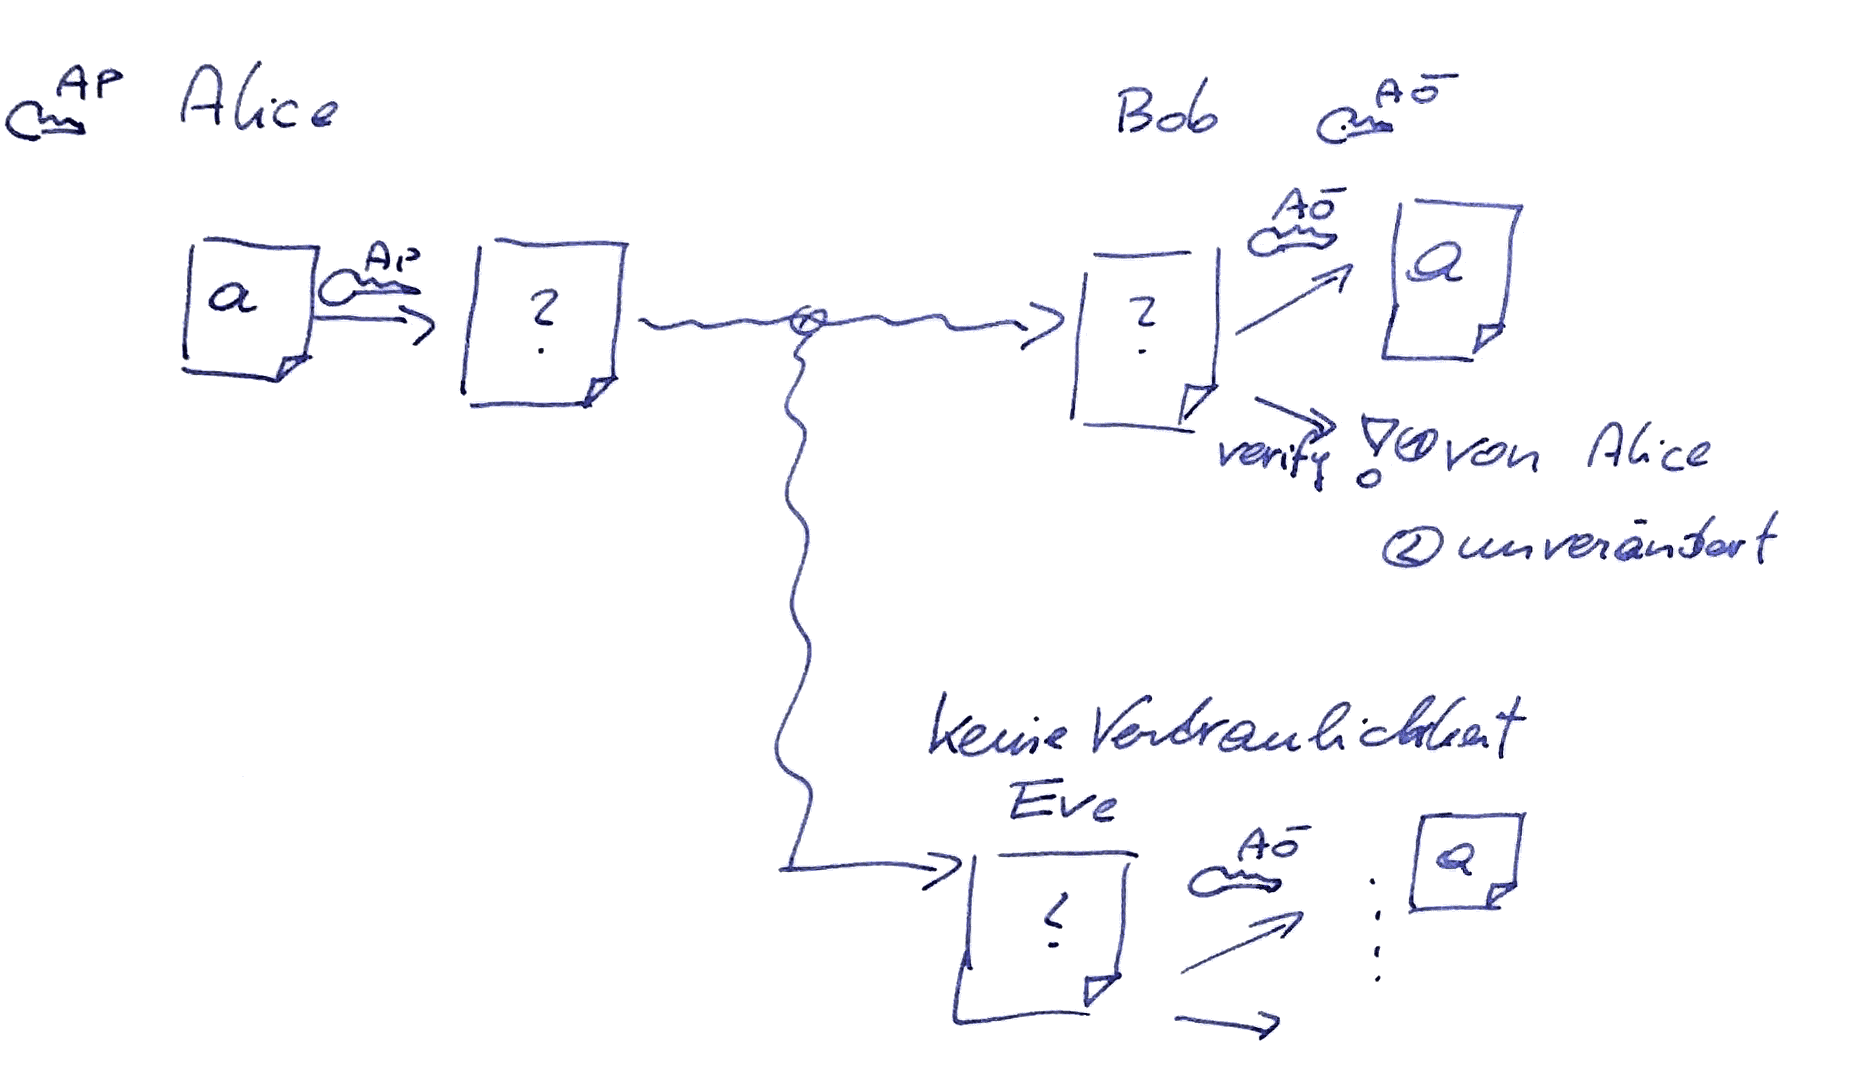 AP Alice
Bob AÖ
a
AP
?
?
AÖ
a
verify ! ① von Alice
② unverändert
Keine Vertraulichkeit
Eve
?
AÖ
a